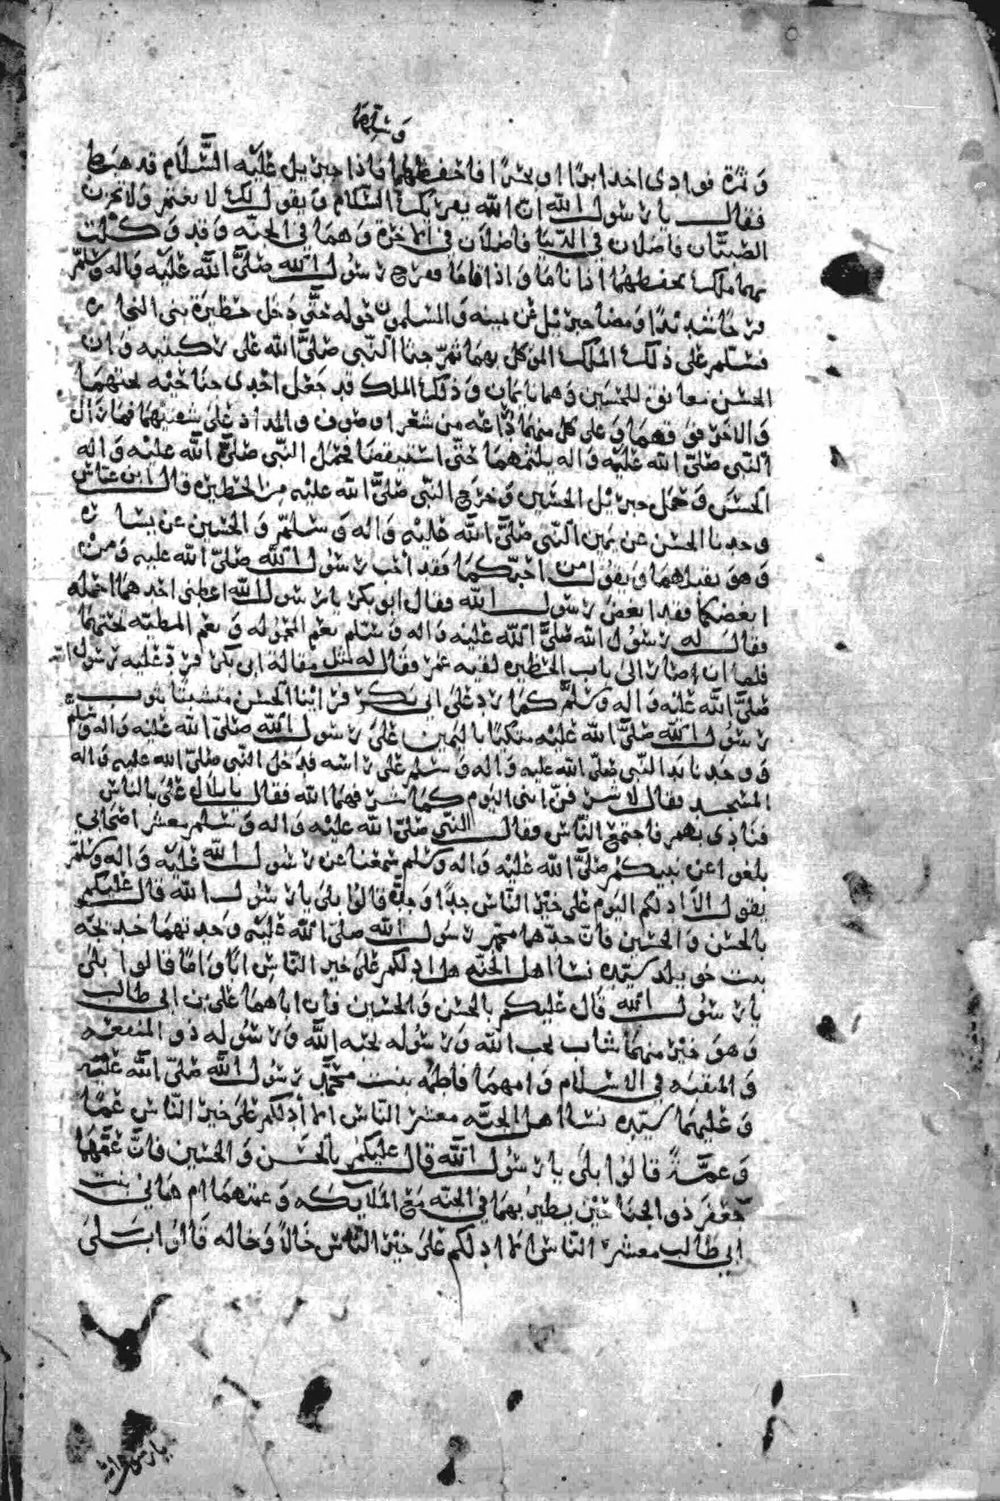 وسلمهما
وثمرة فوادى اخدا برا او بحرا فاحفظهما فاذا جبريل عليه السلام قد هبط
فقال يا رسول الله ان الله يقريك السلام ويقول لك لا تغتم ولا تحزن
الصبيان فاضلان في الدنيا فاضلان في الاخرة وهما في الجنة وقد وكلت
بهما ملكا يحفظهما اذا ناما واذا قاما ففرح رسول الله صلى الله عليه واله وسلم
فرحا شديدا ومضا جبريل عن يمينه والمسلمون حوله حتى دخل حظيرة بنى النجار
فسلم على ذلك الملك الموكل بهما ثم جثا النبي صلى الله على ركبتيه وان
الحسن معانق للحسين وهما نايمان وذلك الملك قد جعل احدى جناحيه تحتهما
والاخر فوقهما وعلى كل منهما دراعه من شعر او صوف والمداد على شفتيهما فما زال
النبي صلى الله عليه واله يلثمهما حتى استيقضا فحمل النبي صلى الله عليه واله
الحسن وحمل جبريل الحسين وخرج النبي صلى الله عليه من الحظيرة قال ابن عباس
وجدنا الحسن عن يمين النبي صلى الله عليه واله وسلم والحسين عن يساره
وهو يقبلهما ويقول من احبكما فقد احب رسول الله صلى الله عليه ومن
ابغضكما فقد ابغض رسول الله فقال ابو بكر يا رسول الله اعطنى احدهما احمله
فقال له رسول الله صلى الله عليه واله وسلم نعم المحموله ونعم المطيه تحتهما
فلما ان صار الى باب الحظيره لقيه عمر فقال له مثل مقالة ابي بكر فرد عليه رسول الله
صلى الله عليه واله وسلم كما رد على ابي بكر فراينا الحسن متشبثا بثوب
رسول الله صلى الله عليه متكيا باليمين على رسول الله صلى الله عليه واله وسلم
ووجدنا يد النبي صلى الله عليه واله وسلم على راسه فدخل النبي صلى الله عليه واله
المسجد فقال لاشرفن ابنى اليوم كما شرفهما الله فقال يا بلال على بالناس
فنادى بهم فاجتمع الناس فقال النبي صلى الله عليه واله وسلم معشر اصحابي
بلغوا عن نبيكم صلى الله عليه واله وسلم سمعنا عن رسول الله عليه واله وسلم
يقول الا ادلكم اليوم على خير الناس جدا وجدة قالوا بلى يا رسول الله قال عليكم
بالحسن والحسين فان جدهما محمد رسول الله صلى الله عليه وجدتهما خديجه
بنت خويلد سيده نسا اهل الجنه هل ادلكم على خير الناس ابا واما قالوا بلى
يا رسول الله قال عليكم بالحسن والحسين فان اباهما على بن ابي طالب
وهو خير منهما شاب يحب الله ورسوله يحبه الله ورسوله ذو المنفعه
والمنقبه في الاسلام وامهما فاطمه بنت محمد رسول الله صلى الله عليه
وعليهما سيده نسا اهل الجنه معشر الناس الا ادلكم على خير الناس عما
وعمة قالوا بلى يا رسول الله قال عليكم بالحسن والحسين فان عمهما
جعفر ذو الجناحين يطير بهما في الجنه مع الملايكه وعمتهما ام هانى بنت
ابي طالب معشر الناس الا ادلكم على خير الناس خالا وخاله قالوا بلى